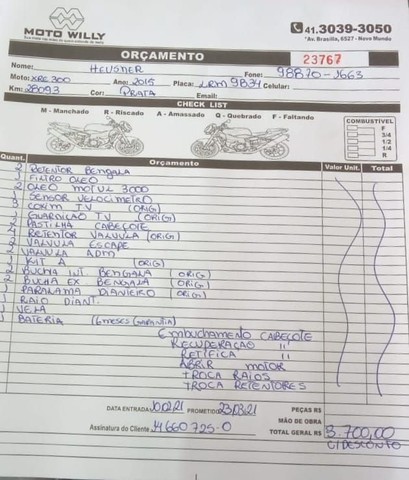 MOTO WILLY
41.3039-3050
*Av. Brasília, 6527 - Novo Mundo
ORÇAMENTO
23767
Nome: HEUSNER Fone: 98870-1663
Moto: XRE 300 Ano: 2015 Placa: 9834 Celular:
Km: 28093 Cor: PRATA Email:
CHECK LIST
M - Manchado R - Riscado A - Amassado Q - Quebrado F - Faltando
COMBUSTIVEL
F
3/4
1/2
1/4
R
Quant. Orçamento Valor Unit. Total
2 RETENTOR BENGALA
1 FILTRO OLEO
2 OLEO MOTUL 3000
SENSOR VELOCIMETRO
CORM TV (ORIG)
1 GUARNIÇÃO TV (ORIG)
2 PASTILHA CABEÇOTE
4 RETENTOR VALVULA (ORIG)
2 VALVULA ESCAPE
2 VALVULA ADM
1 KIT A (ORIG)
2 BUCHA INT. BENGALA (ORIG)
2 BUCHA EX BENGALA (ORIG)
1 PARALAMA DIANTEIRO (ORIG)
1 RAIO DIANT.
1 VELA
1 BATERIA (6 MESES GARANTIA)
EMBUCHAMENTO CABEÇOTE
RECUPERAÇÃO "
RETÍFICA "
ABRIR MOTOR
TROCA RAIOS
TROCA RETENTORES
DATA ENTRADA: 10/02/21 PROMETIDO: 23/03/21 PEÇAS R$
MÃO DE OBRA
Assinatura do Cliente 14660725-0 TOTAL GERAL R$ 3.700,00
C/DESCONTO